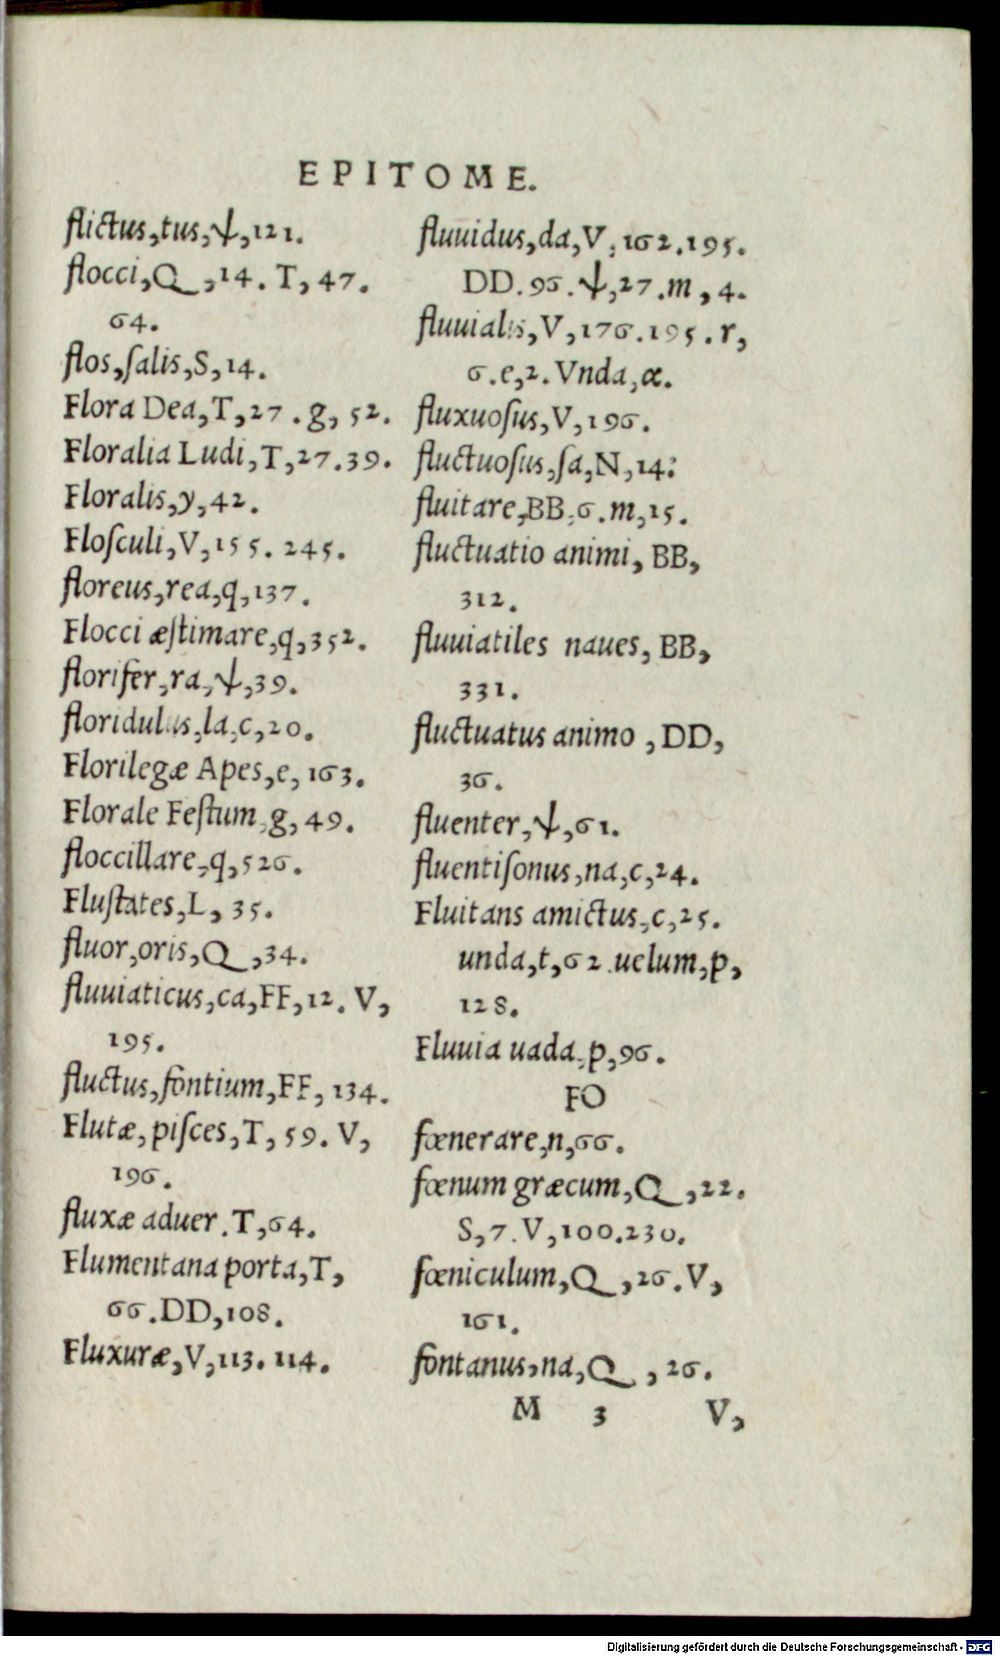 EPITOME.
flictus,tus,Ψ,121.
flocci,Q,14. T,47.
64.
flos,ſalis,S,14.
Flora Dea,T,27.g, 52.
Floralia Ludi,T,27.39.
Floralis,y,42.
Floſculi,V,155. 245.
floreus,rea,q,137.
Flocci æſtimare,q,352.
florifer,ra,Ψ,39.
floridulus,la,c,20.
Florilegæ Apes,e,163.
Florale Feſtum,g,49.
floccillare,q,526.
Fluſtates,L, 35.
fluor,oris,Q,34.
fluuiaticus,ca,FF,12. V,
195.
fluctus,fontium,FF,134.
Flutæ,piſces,T,59. V,
196.
fluxæ aduer.T,64.
Flumentana porta,T,
66.DD,108.
Fluxuræ,V,113.114.
fluuidus,da,V,162.195.
DD.96.Ψ,27.m,4.
fluuialis,V,176.195.r,
6.e,2.Vnda,æ.
fluxuoſus,V,196.
fluctuoſus,ſa,N,14:
fluitare,BB,6.m,15.
fluctuatio animi, BB,
312.
fluuiatiles naues, BB,
331.
fluctuatus animo , DD,
36.
fluenter,Ψ,61.
fluentiſonus,na,c,24.
Fluitans amictus,c,25.
unda,t,62.uelum,p,
128.
Fluuia uada,p,96.
FO
fœnerare,n,66.
fœnum græcum,Q,22.
S,7.V,100.230.
fœniculum,Q,26.V,
161.
fontanus,na,Q,26.
M 3 V,
Digitalisierung gefördert durch die Deutsche Forschungsgemeinschaft - DFG